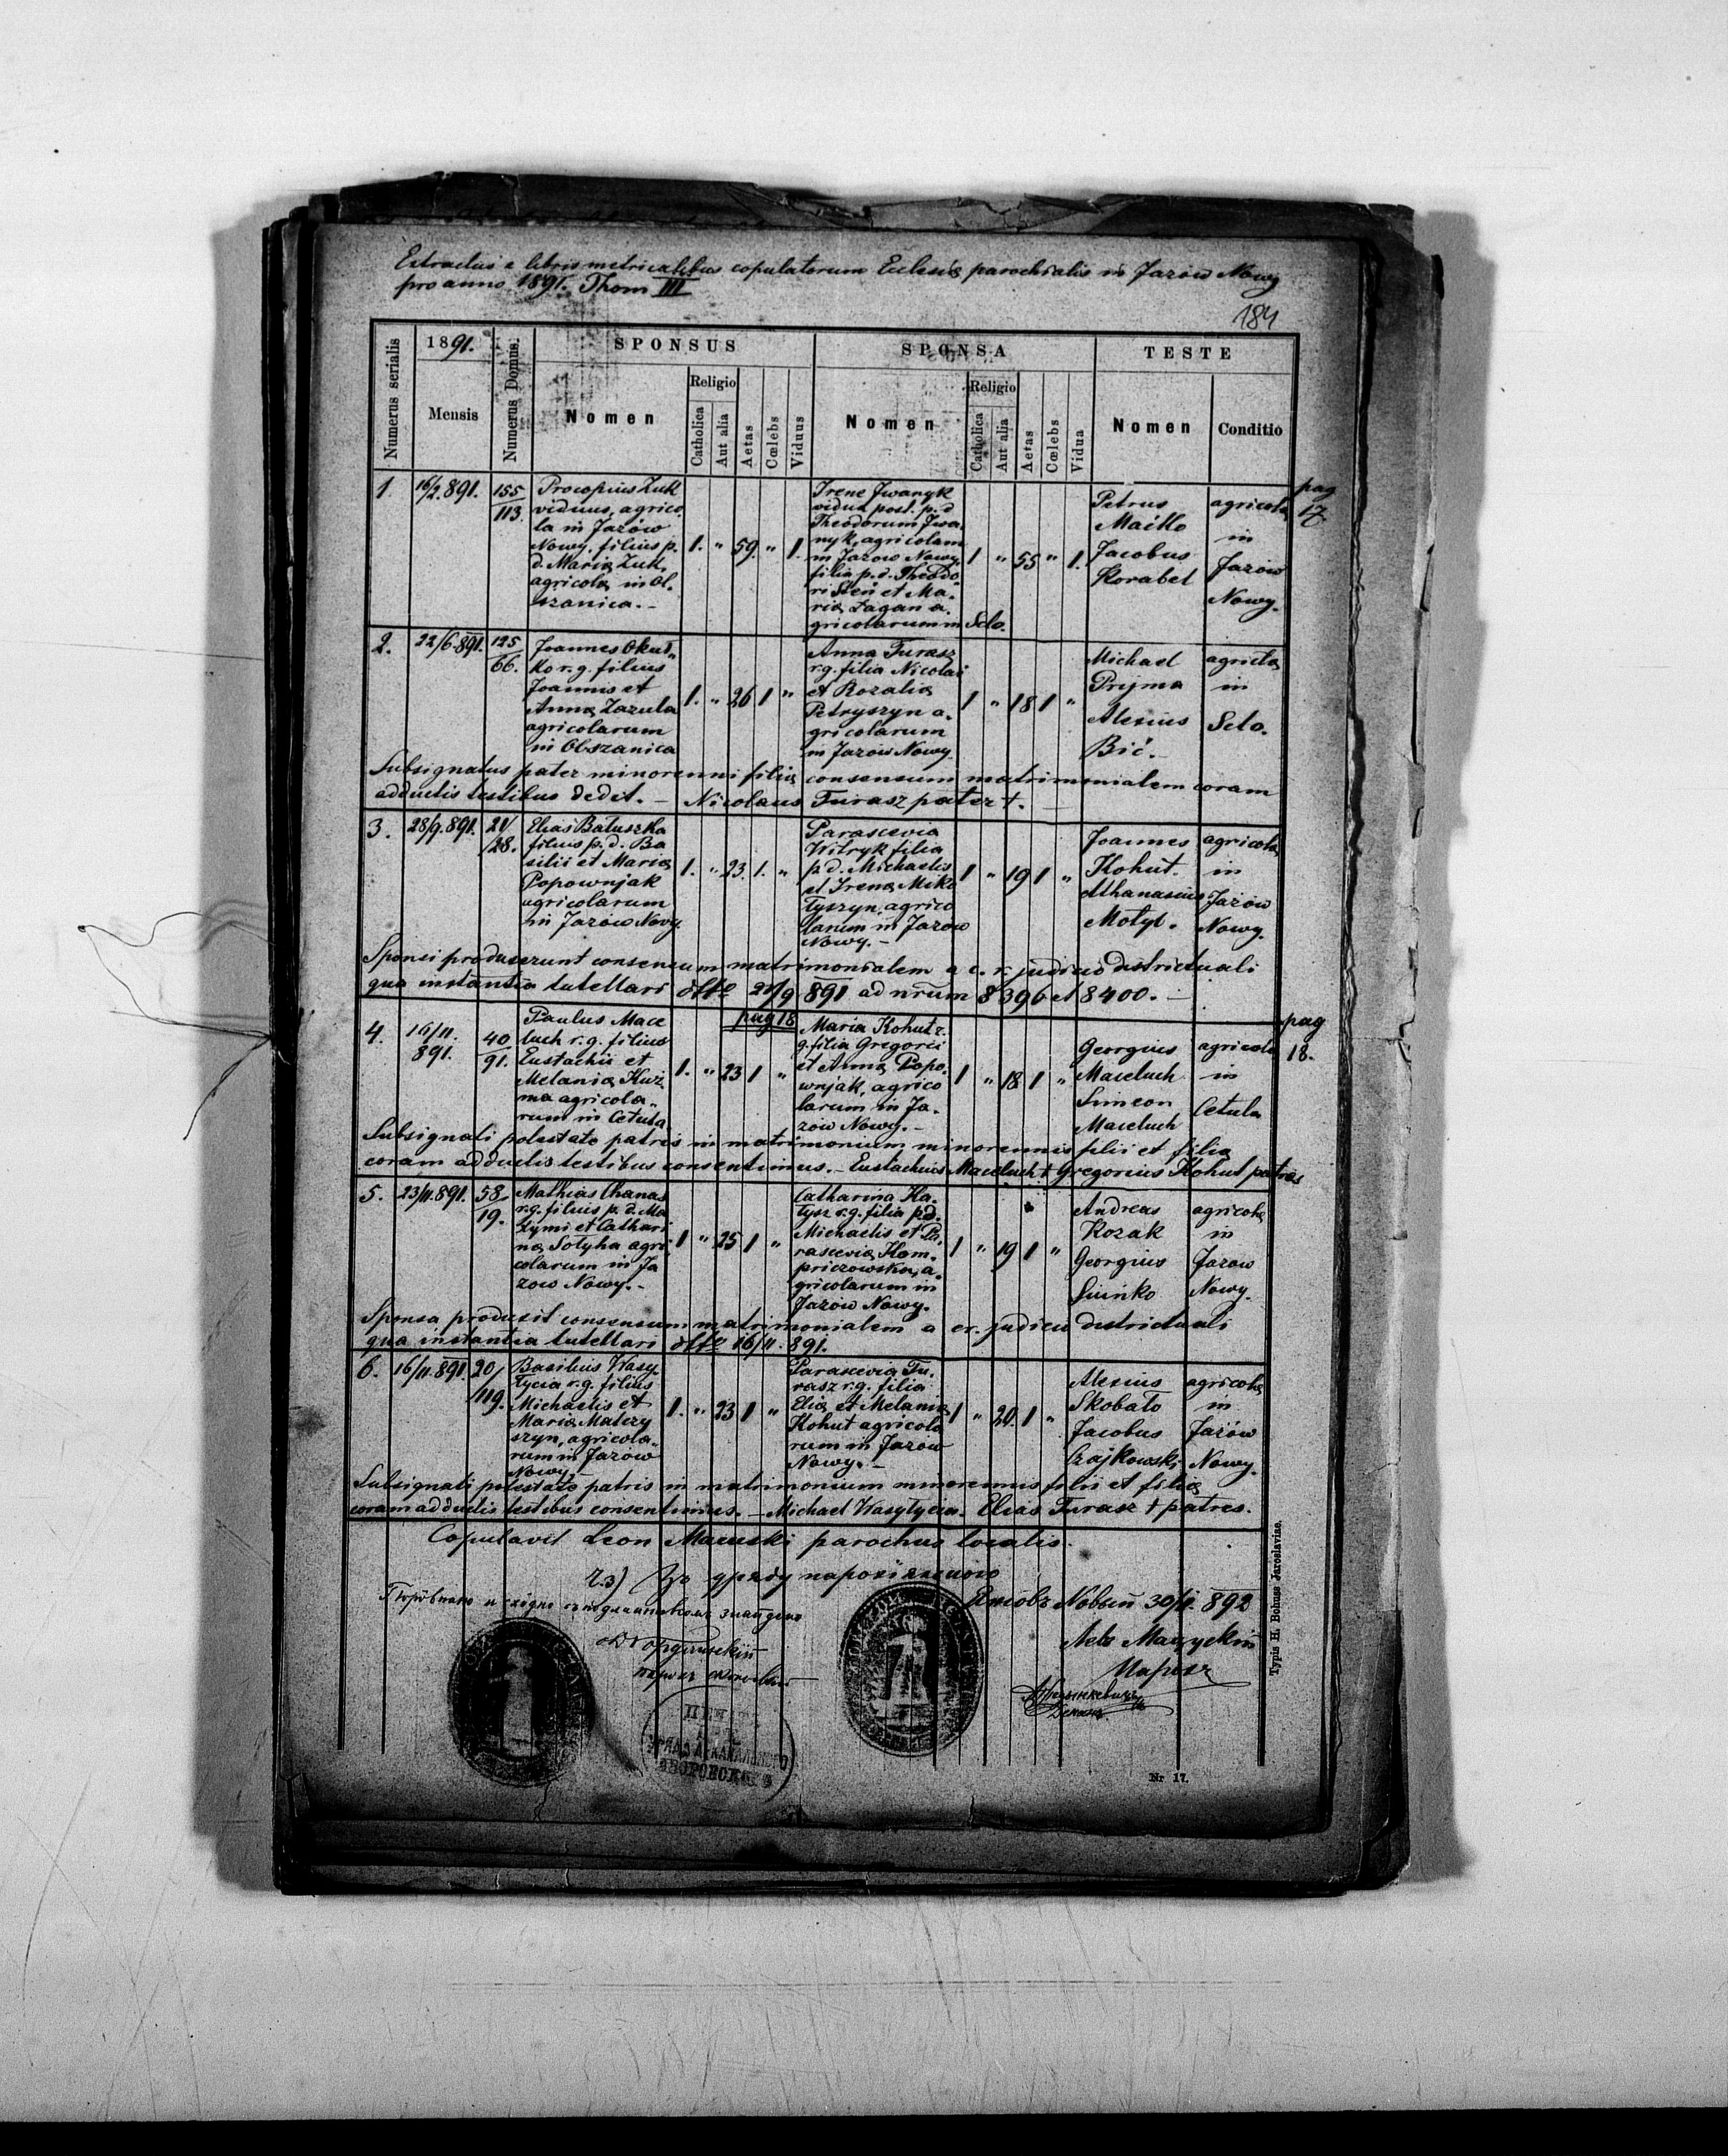 Extractus e libris metricalibus copulatorum Ecclesiæ parochialis in Jazów Nowy
pro anno 1891. Thom III
184
Numerus serialis
1891.
Mensis
Numerus Domus.
SPONSUS
Nomen
Religio
Catholica
Aut alia
Aetas
Cœlebs
Viduus
SPONSA
Nomen
Religio
Catholica
Aut alia
Aetas
Cœlebs
Vidua
TESTE
Nomen
Conditio
pag
17.
1.
16/2.891.
155
113.
Procopius Zuk
viduus, agrico
la in Jazów
Nowy, filius p.
d. Mariæ Zuk,
agricolæ in Ol-
szanica. -
1. " 59. " 1.
Irene Jwanyk
vidua post. p. d
Theodorum Jwa-
nyk, agricolam
in Jazow Nowy
filia p. d. Theodo-
ri Steń et Ma-
riæ Łagan a-
gricolarum in Sclo.
1 " 55 " 1.
Petrus
Maćko
Jacobus
Korabel
agricolæ
in
Jazów
Nowy.
2.
22/6.891.
125
66.
Joannes
ko r. g. filius
Joannis et
Annæ Zazula
agricolarum
in Olszanica
1. " 26 1 "
Anna Turasz
r. g. filia Nicolai
et Rozaliæ
Petryszyn a-
gricolarum
in Jazow Nowy
1 " 18 1 "
Michael
Pryjma
Alexius
Bić. -
agricolæ
in
Sclo.
Subsignatus pater minorenni filiæ consensum matrimonialem coram
adductis testibus dedit. - Nicolaus Turasz pater +. -
3.
28/9.891.
21/
/28.
Elias Batuszka
filius p. d. Ba
silii et Mariæ
Popownjak
agricolarum
in Jazów Nowy
1. " 23. 1. "
Parascevia
Witryk filia
p. d. Michaelis
et Irenæ Miko
łyszyn, agrico
larum in Jazow
Nowy. -
1 " 19 1 "
Joannes
Kohut.
Athanasius
Motyl.
agricolæ
in
Jazów
Nowy.
Sponsi produxerunt consensum matrimonialem a c. r. judicio districtuali
qua instantia tutellari dtto 21/9 891 ad nrum 8396 et 8400. -
pag 18
pag
18.
4.
16/11.
891.
40
91.
Paulus Mace
luch r. g. filius
Eustachii et
Melaniæ Kuź
ma agricola-
rum in Cetula
1. " 23 1 "
Maria Kohut r.
g. filia Gregorii
et Annæ Popo-
wnjak, agrico
larum in Ja-
zów Nowy. -
1 " 18 1 "
Georgius
Maceluch
Simeon
Maceluch
agricolæ
in
Cetula
Subsignati potestate patris in matrimonium minorennis filii et filiæ
coram adductis testibus consentimus. - Eustachius Maceluch + Gregorius Kohut patres
5.
23/11.891.
58.
19.
Mathias Chanas
r. g. filius p. d. Ma
xymi et Cathari
næ Sołyha agri
colarum in Ja
zow Nowy. -
1 " 25 1 "
Catharina Ha-
łysz r. g. filia p. d.
Michaelis et Pa-
rasceviæ
a-
gricolarum in
Jazów Nowy.
1 " 19 1 "
Andreas
Kozak
Georgius
agricolæ
in
Jazow
Nowy.
Sponsa produxit consensum matrimonialem a cr. judicii districtuali
qua instantia tutellari dtto 16/11. 891.
6.
16/11.891.
20/
/119.
Basilius Wasy-
łycia r. g. filius
Michaelis et
Mariæ Matczy
szyn, agricola-
rum in Jazów
Nowy. -
1. " 23 1 "
Parascevia Tu-
rasz r. g. filia
Eliæ et Melaniæ
Kohut agricola
rum in Jazów
Nowy. -
1 " 20. 1 "
Alexius
Skobało
Jacobus
Czajkowski
agricolæ
in
Jazów
Nowy.
Subsignati potestate patris in matrimonium minorennis filii et filiæ
coram adductis testibus consentimus. - Michael Wasyłycia. Elias Turasz + patres.
Copulavit Leon Macuski parochus localis.
Nr 17.
Typis H. Bohuss Jaroslaviae.